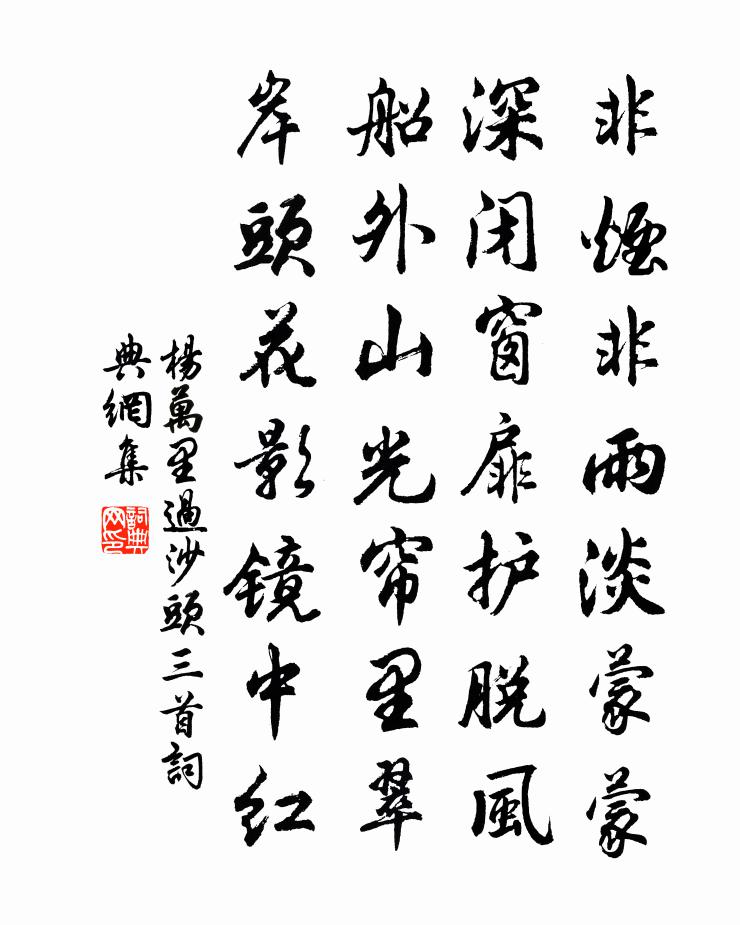 非煙非雨淡蒙蒙
深闭窗扉护脱風
船外山光帘里翠
岸頭花影镜中红
楊萬里過沙頭三首詞
典網集
詞典
网印